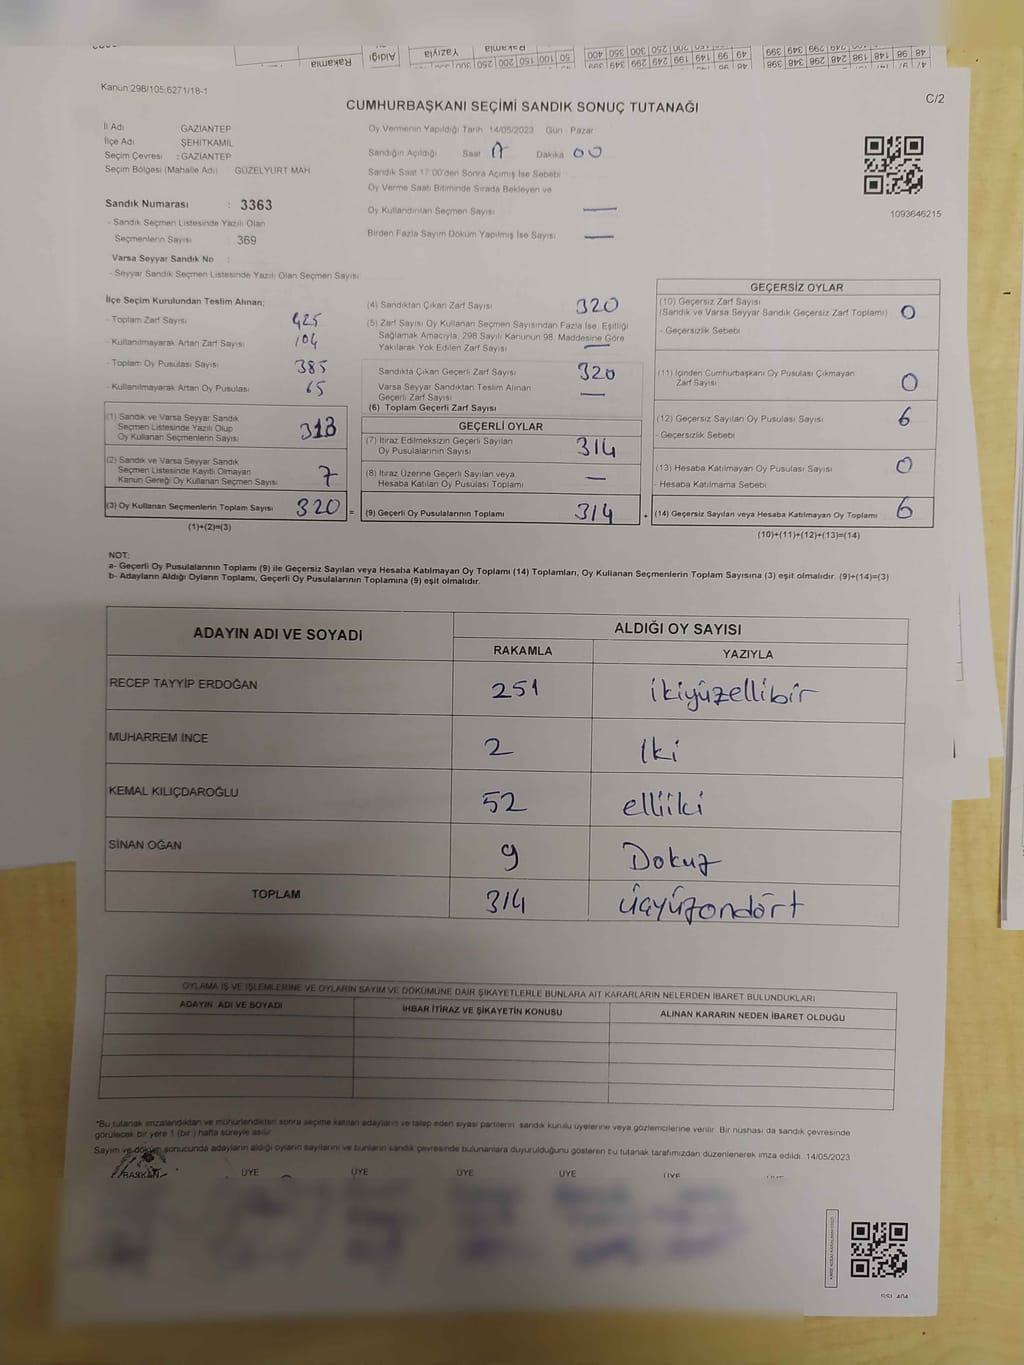 Kanun:298/105:6271/18-1
C/2
CUMHURBAŞKANI SEÇİMİ SANDIK SONUÇ TUTANAĞI
İl Adı GAZİANTEP
İlçe Adı ŞEHİTKAMİL
Seçim Çevresi : GAZİANTEP
Seçim Bölgesi (Mahalle Adı) GÜZELYURT MAH
Sandık Numarası : 3363
- Sandık Seçmen Listesinde Yazılı Olan
Seçmenlerin Sayısı 369
Varsa Seyyar Sandık No :
- Seyyar Sandık Seçmen Listesinde Yazılı Olan Seçmen Sayısı
Oy Vermenin Yapıldığı Tarih 14/05/2023 Gün : Pazar
Sandığın Açıldığı Saat 17 Dakika 00
Sandık Saat 17:00'den Sonra Açımış İse Sebebi
Oy Verme Saati Bitiminde Sırada Bekleyen ve
Oy Kullandırılan Seçmen Sayısı —
Birden Fazla Sayım Döküm Yapılmış İse Sayısı —
1093646215
İlçe Seçim Kurulundan Teslim Alınan;
- Toplam Zarf Sayısı 425
- Kullanılmayarak Artan Zarf Sayısı 104
- Toplam Oy Pusulası Sayısı 385
- Kullanılmayarak Artan Oy Pusulası 65
(1) Sandık ve Varsa Seyyar Sandık
Seçmen Listesinde Yazılı Olup
Oy Kullanan Seçmenlerin Sayısı 313
(2) Sandık ve Varsa Seyyar Sandık
Seçmen Listesinde Kayıtlı Olmayan
Kanun Gereği Oy Kullanan Seçmen Sayısı 7
(3) Oy Kullanan Seçmenlerin Toplam Sayısı 320 =
(1)+(2)=(3)
(4) Sandıktan Çıkan Zarf Sayısı 320
(5) Zarf Sayısı Oy Kullanan Seçmen Sayısından Fazla İse, Eşitliği
Sağlamak Amacıyla, 298 Sayılı Kanunun 98. Maddesine Göre
Yakılarak Yok Edilen Zarf Sayısı —
Sandıkta Çıkan Geçerli Zarf Sayısı 320
Varsa Seyyar Sandıktan Teslim Alınan
Geçerli Zarf Sayısı —
(6) Toplam Geçerli Zarf Sayısı
GEÇERLİ OYLAR
(7) İtiraz Edilmeksizin Geçerli Sayılan
Oy Pusulalarının Sayısı 314
(8) İtiraz Üzerine Geçerli Sayılan veya
Hesaba Katılan Oy Pusulası Toplamı —
(9) Geçerli Oy Pusulalarının Toplamı 314 +
GEÇERSİZ OYLAR
(10) Geçersiz Zarf Sayısı
(Sandık ve Varsa Seyyar Sandık Geçersiz Zarf Toplamı) 0
- Geçersizlik Sebebi
(11) İçinden Cumhurbaşkanı Oy Pusulası Çıkmayan
Zarf Sayısı 0
(12) Geçersiz Sayılan Oy Pusulası Sayısı 6
- Geçersizlik Sebebi
(13) Hesaba Katılmayan Oy Pusulası Sayısı 0
- Hesaba Katılmama Sebebi
(14) Geçersiz Sayılan veya Hesaba Katılmayan Oy Toplamı 6
(10)+(11)+(12)+(13)=(14)
NOT:
a- Geçerli Oy Pusulalarının Toplamı (9) ile Geçersiz Sayılan veya Hesaba Katılmayan Oy Toplamı (14) Toplamları, Oy Kullanan Seçmenlerin Toplam Sayısına (3) eşit olmalıdır. (9)+(14)=(3)
b- Adayların Aldığı Oyların Toplamı, Geçerli Oy Pusulalarının Toplamına (9) eşit olmalıdır.
ADAYIN ADI VE SOYADI
ALDIĞI OY SAYISI
RAKAMLA YAZIYLA
RECEP TAYYİP ERDOĞAN 251 ikiyüzellibir
MUHARREM İNCE 2 İki
KEMAL KILIÇDAROĞLU 52 elliiki
SİNAN OĞAN 9 Dokuz
TOPLAM 314 üçyüzondört
OYLAMA İŞ VE İŞLEMLERİNE VE OYLARIN SAYIM VE DÖKÜMÜNE DAİR ŞİKAYETLERLE BUNLARA AİT KARARLARIN NELERDEN İBARET BULUNDUKLARI
ADAYIN ADI VE SOYADI İHBAR İTİRAZ VE ŞİKAYETİN KONUSU ALINAN KARARIN NEDEN İBARET OLDUĞU
*Bu tutanak imzalandıktan ve mühürlendikten sonra seçime katılan adayların ve talep eden siyasi partilerin sandık kurulu üyelerine veya gözlemcilerine verilir. Bir nüshası da sandık çevresinde
görülecek bir yere 1 (bir) hafta süreyle asılır.
Sayım ve döküm sonucunda adayların aldığı oyların sayılarını ve bunların sandık çevresinde bulunanlara duyurulduğunu gösteren bu tutanak tarafımızdan düzenlenerek imza edildi. 14/05/2023
BAŞKAN ÜYE ÜYE ÜYE ÜYE ÜYE